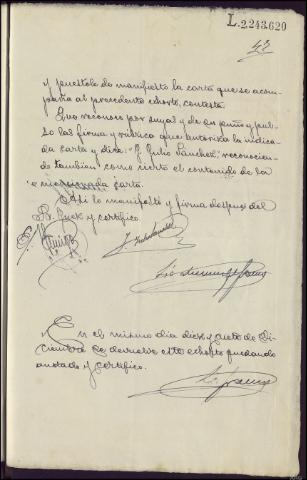 L.2243.620
y puestole de manifiesto la carta que se acom-
paña al precedente exhorto, contesta:
Que reconoce por suyas y de su puño y pul-
so las firma y rúbrica que autoriza la indica-
da carta y dice: "J. Julio Sanchez", reconocien-
do tambien como cierto el contenido de la
mencionada carta.
Asi lo manifestó y firma despues del
Sr. Juez y certifico.
En el mismo dia diez y siete de Di-
ciembre se devuelve este exhorto quedando
anotado y certifico.